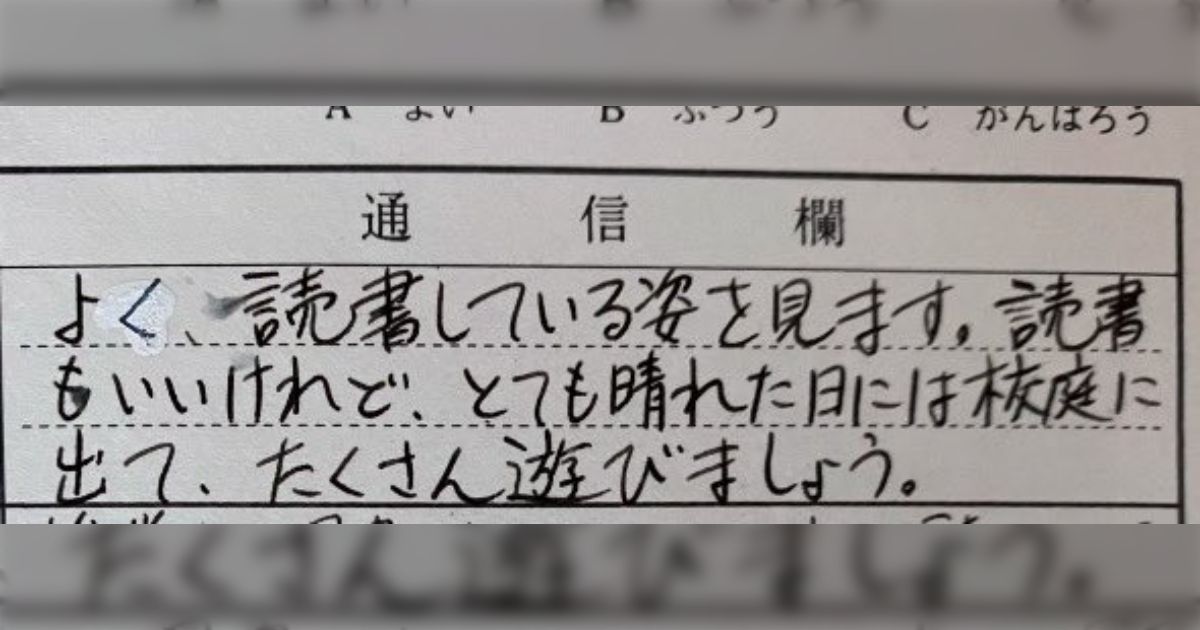 A よい B ふつう C がんばろう
通信欄
よく、読書している姿を見ます。読書
もいいけれど、とても晴れた日には校庭に
出て、たくさん遊びましょう。